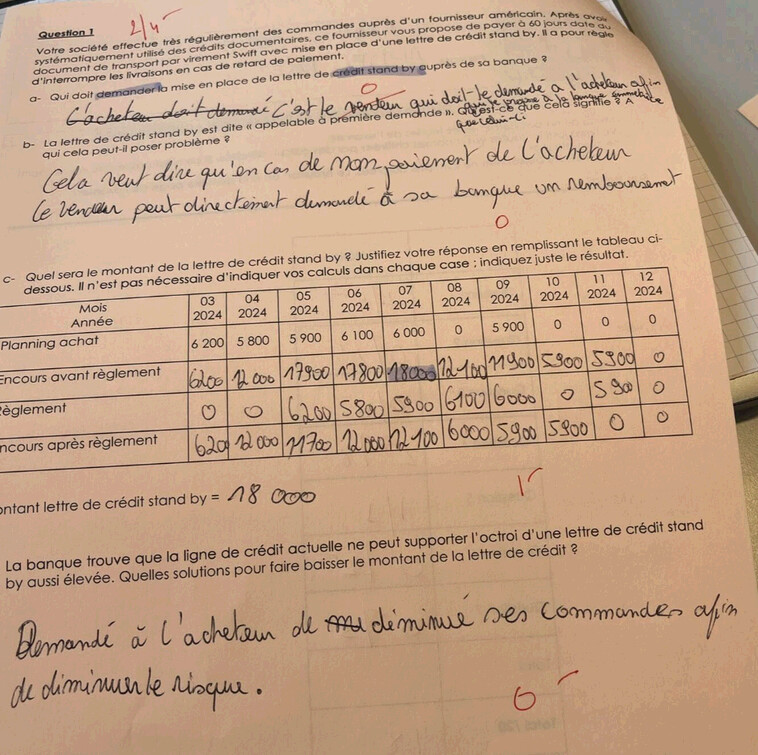 Question 1
2/4
Votre société effectue très régulièrement des commandes auprès d'un fournisseur américain. Après avoir
systématiquement utilisé des crédits documentaires, ce fournisseur vous propose de payer à 60 jours date du
document de transport par virement Swift avec mise en place d'une lettre de crédit stand by. Il a pour règle
d'interrompre les livraisons en cas de retard de paiement.
a- Qui doit demander la mise en place de la lettre de crédit stand by auprès de sa banque ?
0
L'acheteur doit demandé C'est le vendeur qui doit le demandé à l'acheteur afin
b- La lettre de crédit stand by est dite « appelable à première demande ». Qu'est-ce que cela signifie ? A
qui cela peut-il poser problème ?
Cela veut dire qu'en cas de non paiement de l'acheteur
le vendeur peut directement demandé à sa banque un remboursement
0
c- Quel sera le montant de la lettre de crédit stand by ? Justifiez votre réponse en remplissant le tableau ci-
dessous. Il n'est pas nécessaire d'indiquer vos calculs dans chaque case : indiquez juste le résultat.
Mois Année 03 2024 04 2024 05 2024 06 2024 07 2024 08 2024 09 2024 10 2024 11 2024 12 2024
Planning achat 6 200 5 800 5 900 6 100 6 000 0 5 900 0 0 0
Encours avant règlement 6200 12 000 17900 17800 18000 12 100 11900 5900 5900 0
Règlement 0 0 6200 5800 5900 6100 6000 0 5900 0
ncours après règlement 6200 12 000 11700 12 000 12 100 6000 5900 5900 0 0
ontant lettre de crédit stand by = 18 000
1
La banque trouve que la ligne de crédit actuelle ne peut supporter l'octroi d'une lettre de crédit stand
by aussi élevée. Quelles solutions pour faire baisser le montant de la lettre de crédit ?
Demandé à l'acheteur de diminué ses commandes afin
de diminuer le risque.
0